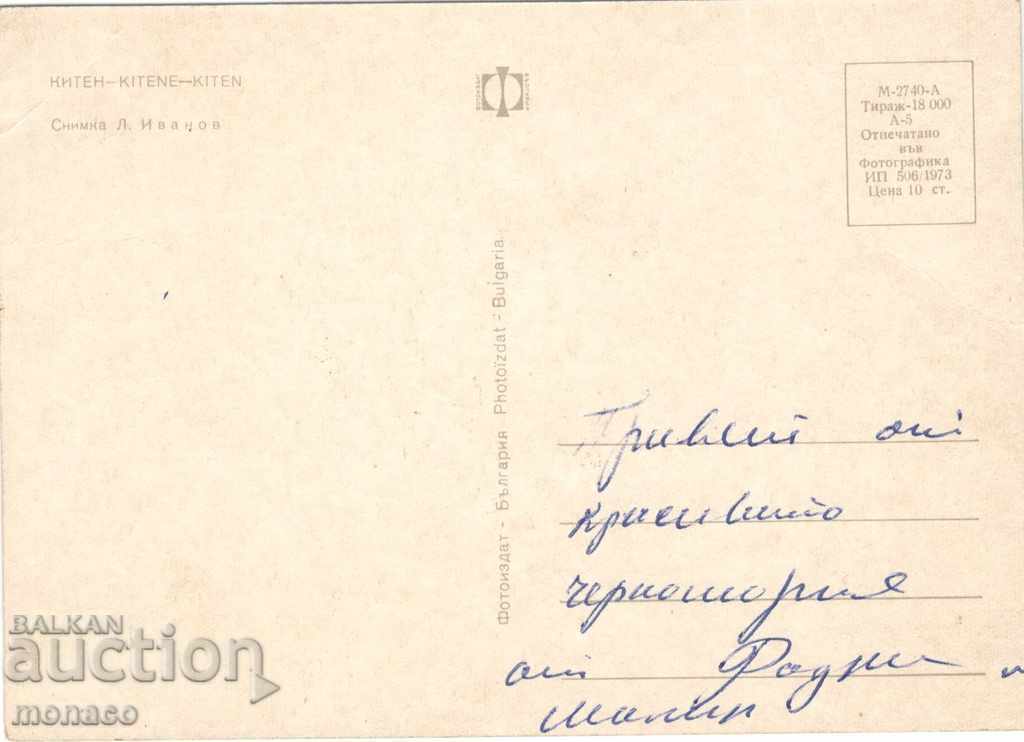 КИТЕН—KITENE—KITEN
Снимка Л. Иванов
М-2740-А
Тираж-18 000
А-5
Отпечатано
във
Фотографика
ИП 506/1973
Цена 10 ст.
Фотоиздат - България Photoïzdat - Bulgaria
Привет от
красивото
черноморие
от
BALKAN
auction
monaco